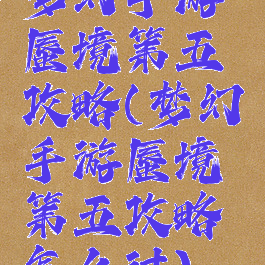 梦幻手游
蜃境第五
攻略(梦幻
手游蜃境
第五攻略
怎么过)